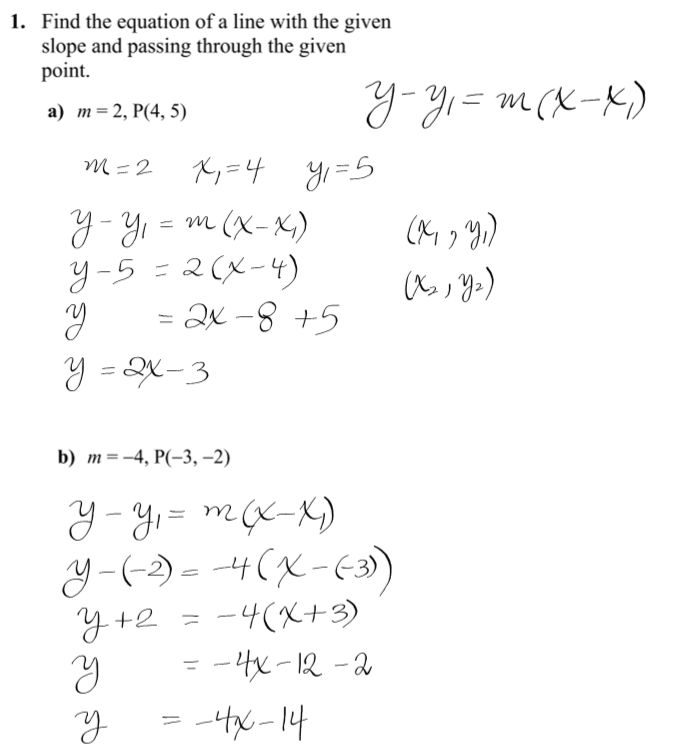 1. Find the equation of a line with the given
slope and passing through the given
point.
y - y₁ = m(x - x₁)
a) m = 2, P(4, 5)
m = 2 x₁ = 4 y₁ = 5
y - y₁ = m(x - x₁)
(x₁, y₁)
y - 5 = 2(x - 4)
(x₂, y₂)
y = 2x - 8 + 5
y = 2x - 3
b) m = –4, P(–3, –2)
y - y₁ = m(x - x₁)
y - (-2) = -4(x - (-3))
y + 2 = -4(x + 3)
y = -4x - 12 - 2
y = -4x - 14